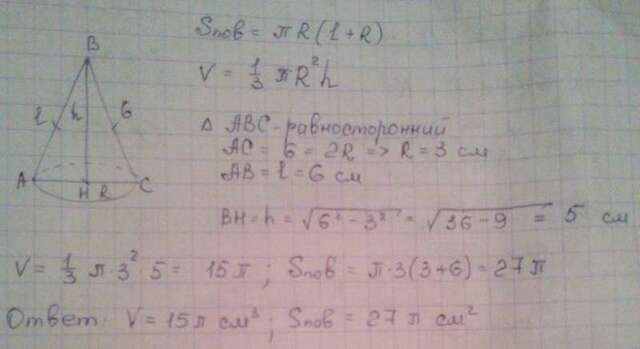 B
l h 6
A H R C
Sпов = πR(l+R)
V = 1/3 πR²h
Δ ABC-равносторонний
AC = 6 = 2R => R = 3 см
AB = l = 6 см
BH = h = √6² - 3² = √36 - 9 = 5 см
V = 1/3 π·3² 5 = 15π ; Sпов = π·3(3+6) = 27π
Ответ: V = 15π см³ ; Sпов = 27π см²